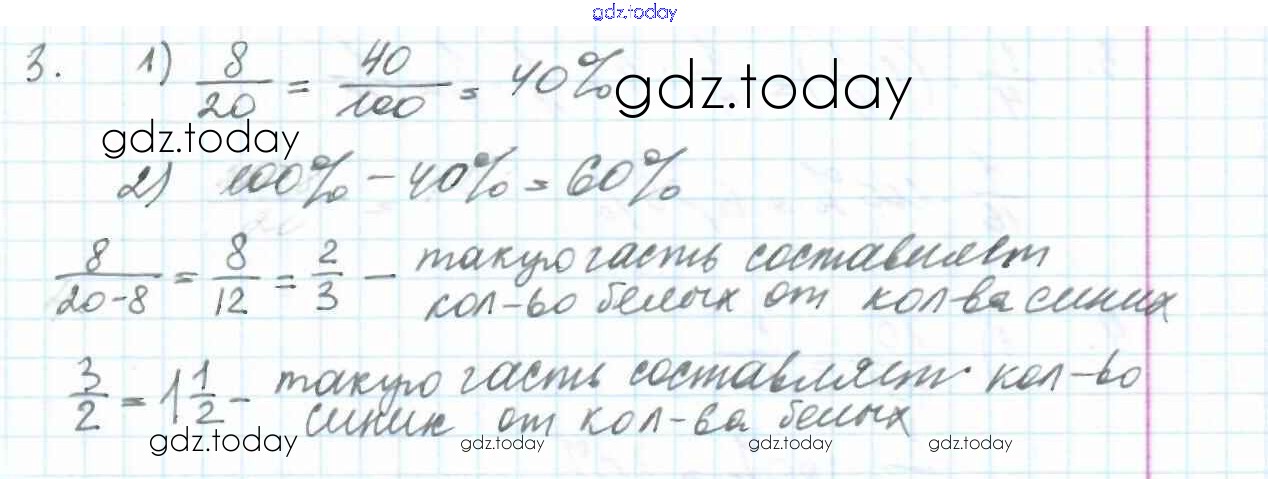 gdz.today
3. 1) 8/20 = 40/100 = 40% gdz.today
gdz.today
2) 100% - 40% = 60%
8/20-8 = 8/12 = 2/3 - такую часть составляет
кол-во белых от кол-ва синих
3/2 = 1 1/2 - такую часть составляет кол-во
синих от кол-ва белых
gdz.today gdz.today gdz.today gdz.today